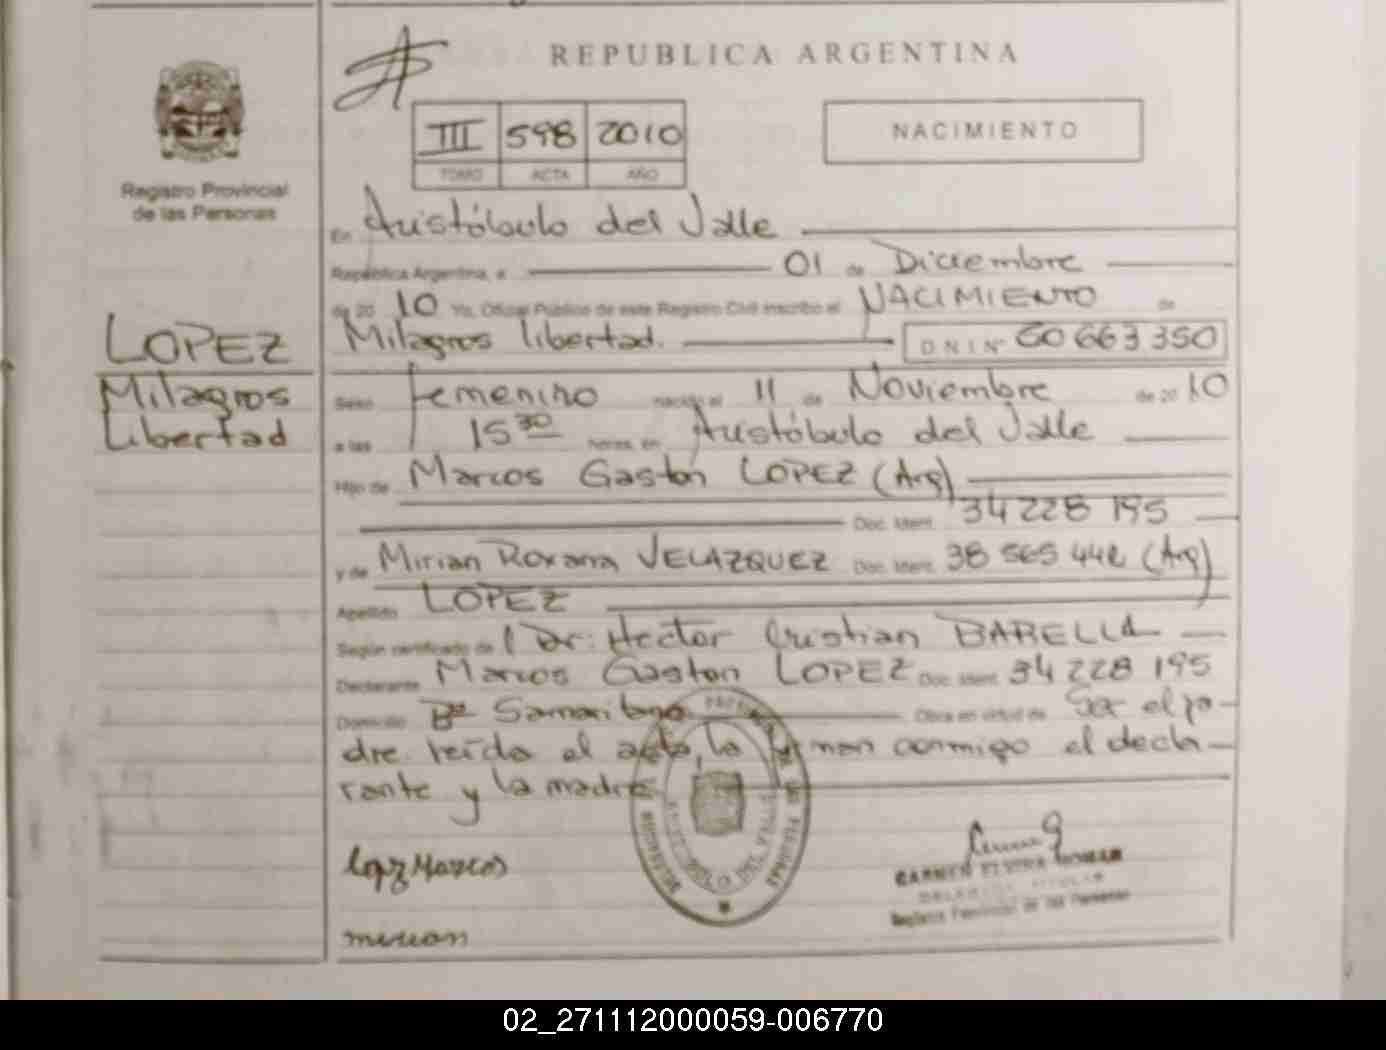 REPUBLICA ARGENTINA
III 598 2010
TOMO ACTA AÑO
NACIMIENTO
Registro Provincial
de las Personas
LOPEZ
Milagros
Libertad
En Aristóbulo del Valle
República Argentina, a 01 de Diciembre
de 20 10 Yo, Oficial Público de este Registro Civil inscribo el NACIMIENTO de
Milagros libertad. D N I Nº 50 663 350
Sexo femenino nacido el 11 de Noviembre de 20 10
a las 15 30 horas, en Aristóbulo del Valle
Hijo de Marcos Gaston LOPEZ (Arg)
Doc. Ident. 34 228 195
y de Mirian Roxana VELAZQUEZ Doc. Ident. 38 565 442 (Arg)
Apellido LOPEZ
Según certificado de Dr: Hector Cristian BARELLA
Declarante Marcos Gaston LOPEZ Doc. Ident. 34 228 195
Domicilio Bº Samaritano Obra en virtud de Ser el pa-
dre. leída el acta, la firman conmigo el decla
rante y la madre
Lopez Marcos
CARMEN ELVIRA
DELEGADA TITULAR
Registro Provincial de las Personas
mirian
DEL VALLE
02_271112000059-006770